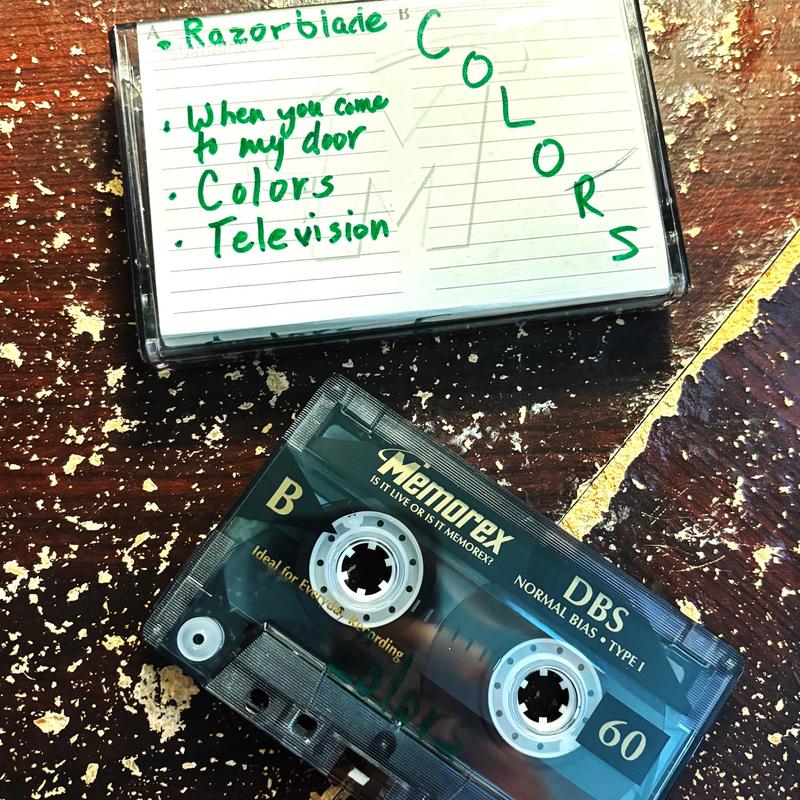 A
B
• Razorblade
• When you come
to my door
• Colors
• Television
COLORS
B
Memorex
IS IT LIVE OR IS IT MEMOREX?
DBS
NORMAL BIAS • TYPE I
Ideal for Everyday Recording
Colors
60